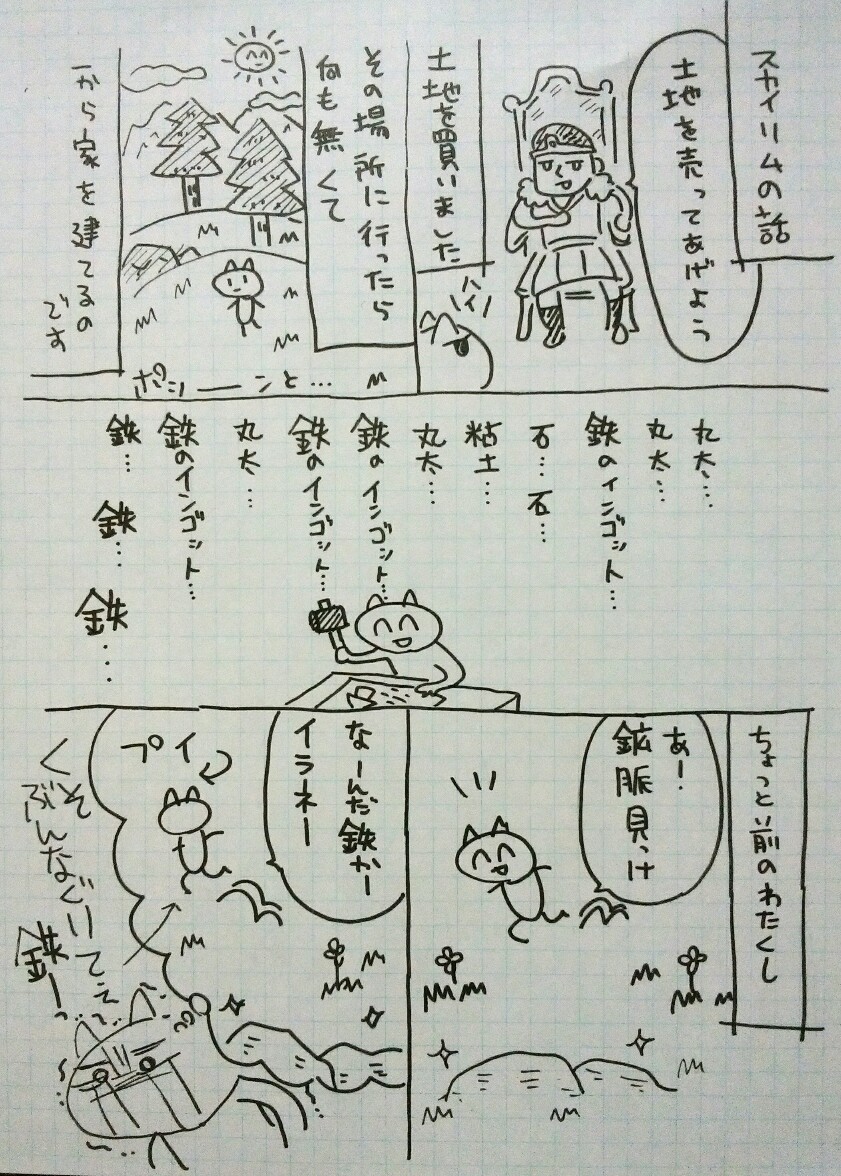 スカイリムの話
土地を売ってあげよう
土地を買いました
ハイ
その場所に行ったら
何も無くて
ポツーーンと…
一から家を建てるの
です
丸太…
丸太…
鉄のインゴット…
石…石…
粘土…
丸太…
鉄のインゴット…
鉄のインゴット…
丸太…
鉄のインゴット…
鉄…鉄…鉄…
ちょっと前のわたくし
あー.
鉱脈見っけ
なーんだ鉄かー
イラネー
プイ
くそ
ぶんなぐりてえ
鉄ーっ…